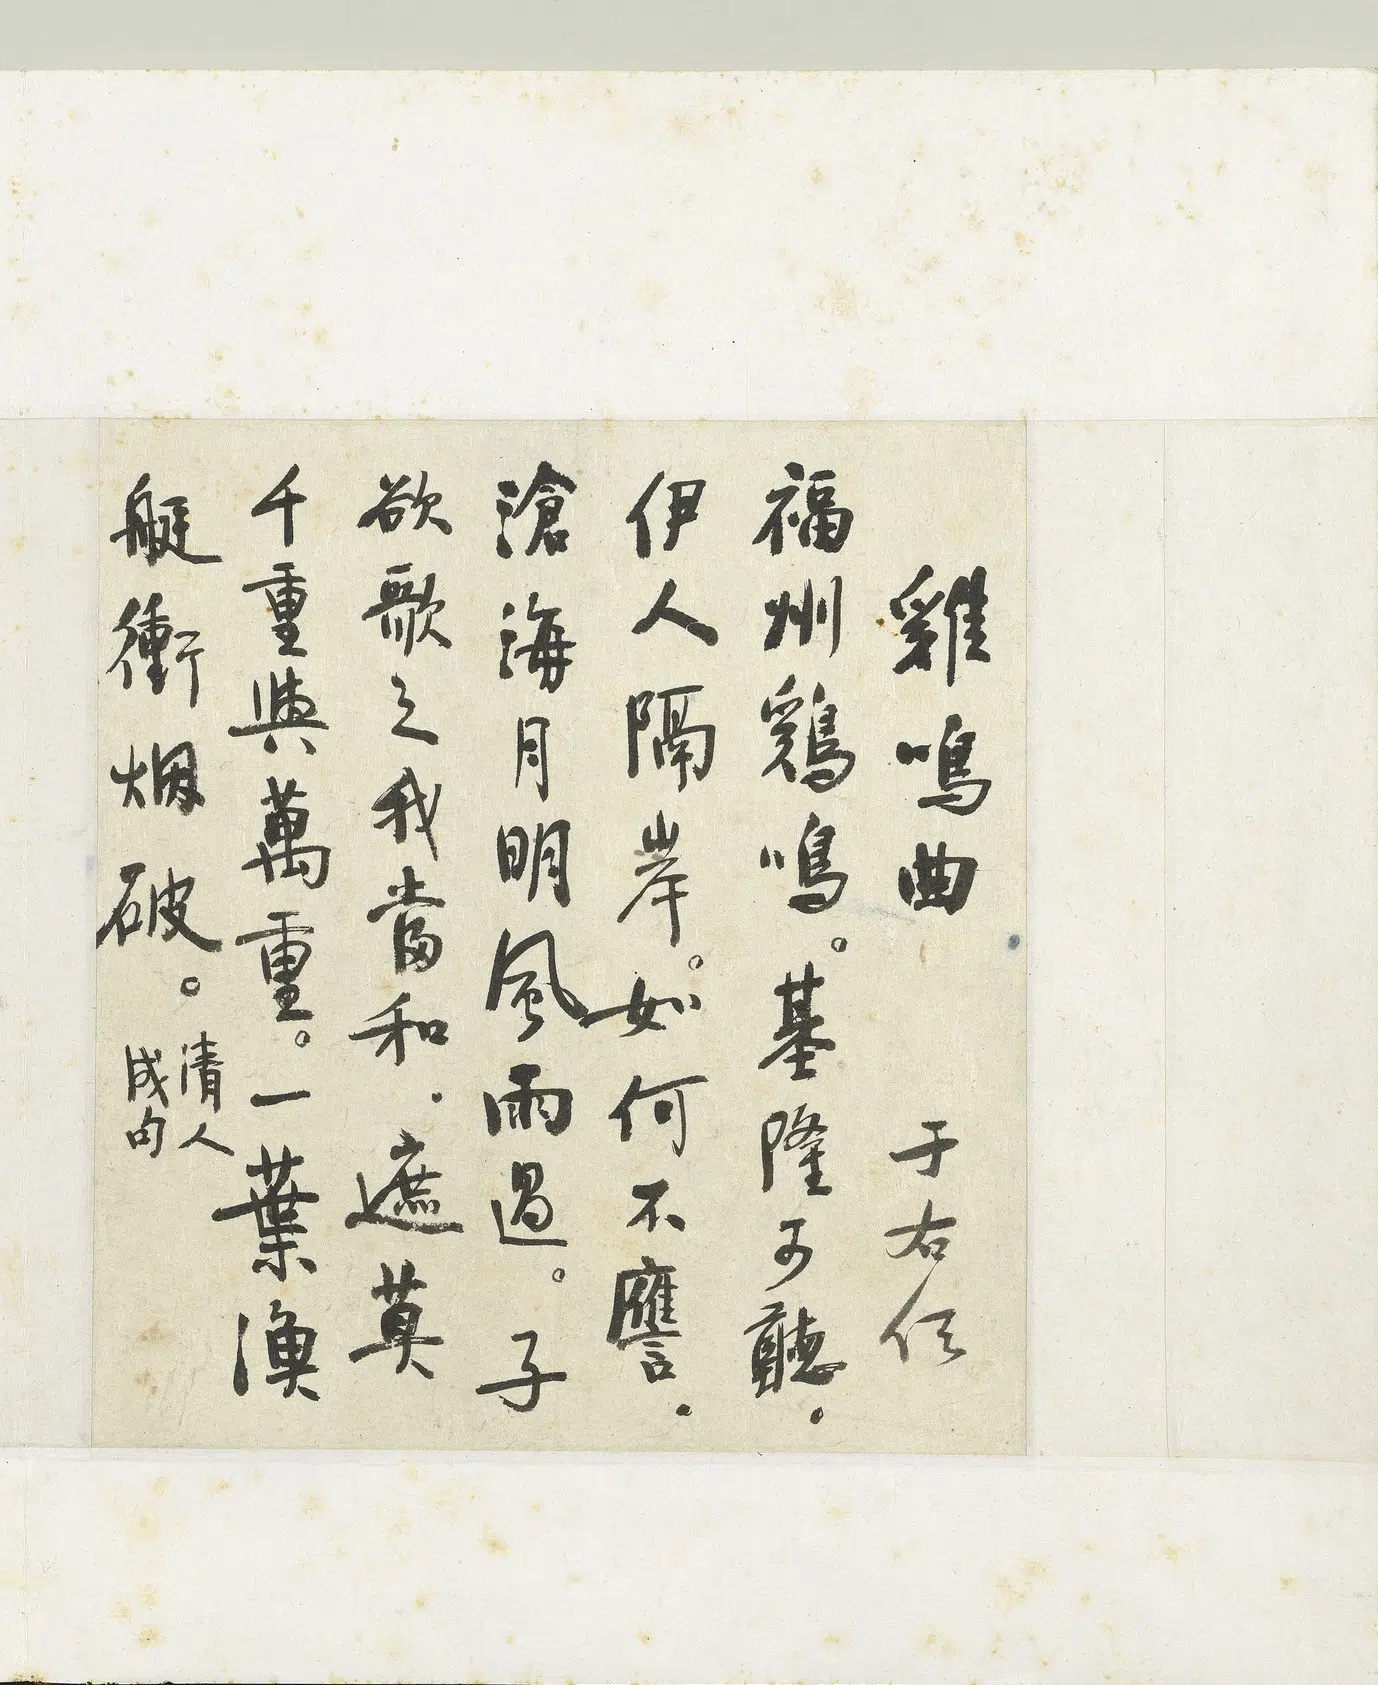 雞鳴曲 于右任
福州鷄鳴。基隆可聽．
伊人隔岸。如何不譍．
滄海月明風雨過。子
欲歌之我當和．遮莫
千重與萬重。一葉漁
艇衝烟破。清人
成句